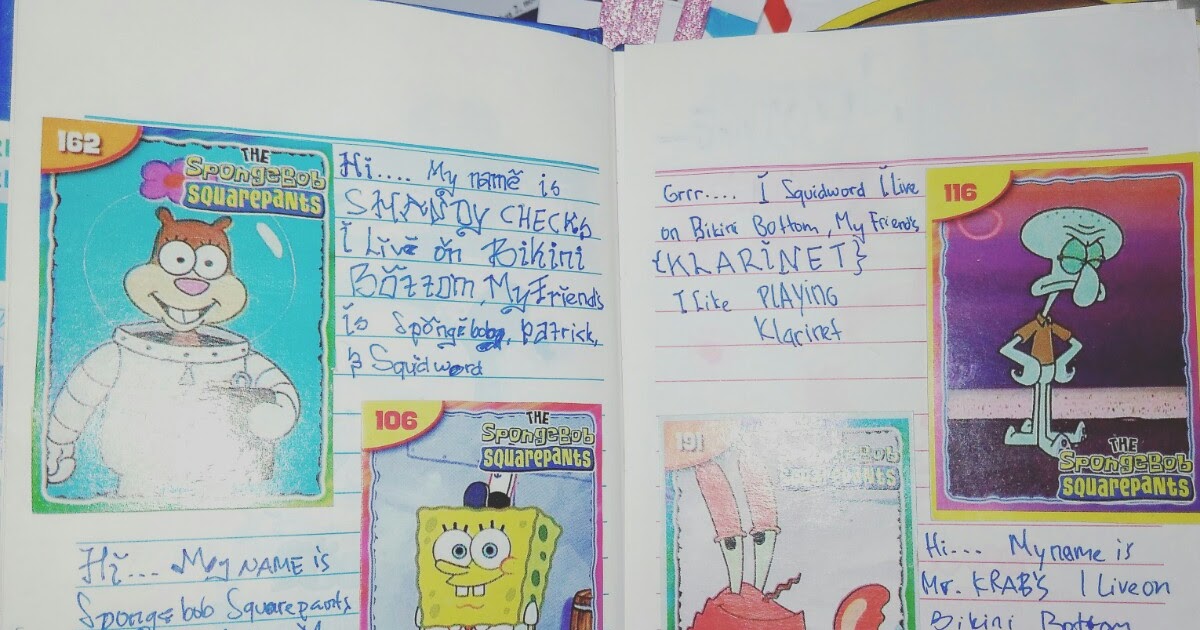 162
THE
SpongeBob
SQUAREPANTS
Hi.... My name is
SHANDY CHECKS
I Live on Bikini
Bozzom, My Friend's
is Spongebob, patrick,
& Squid word
106
THE
SpongeBob
SQUAREPANTS
Hi... My NAME is
Sponge bob Squarepants
Grrr.... I Squidword I Live
on Bikini Bottom, My Friends
{KLARINET}
I Like PLAYING
Klarinet
116
THE
SpongeBob
SQUAREPANTS
191
THE
SpongeBob
SQUAREPANTS
Hi.... My name is
Mr. KRAB'S I Live on
Bikini Bottom